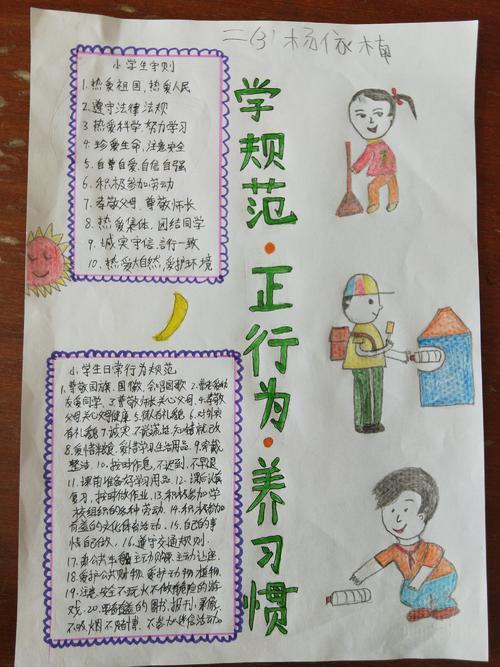 二(3)杨依楠
学规范·正行为·养习惯
小学生守则
1.热爱祖国,热爱人民
2.遵守法律法规
3.热爱科学,努力学习
4.珍爱生命,注意安全
5.自尊自爱,自信自强
6.积极参加劳动
7.孝敬父母,尊敬师长
8.热爱集体,团结同学
9.诚实守信,言行一致
10.热爱大自然,爱护环境
小学生日常行为规范
1.尊敬国旗、国徽,会唱国歌 2.
友爱同学.3.尊敬师长关心父母.4.孝敬
父母关心父母健康 5.微有礼貌 6.对
有礼貌7.诚实不说谎话.知错就改
8.爱惜粮食.爱惜学习生活用品.9.穿戴
整洁.10.按时作息,不迟到、不早退
11.课前准备好学习用品.12.课后认真
复习,按时做作业.13.积极参加学
校组织的各种劳动.14.积极参加
有益的文化体育活动.15.自己的事
情自己做.16.遵守交通规则.
17.乘公共车主动购票.主动让座.
18.爱护公共财物.爱护动物植物.
19.注意安全不玩火不做危险的游
戏.20.图书,报刊,录像,
不吸烟不赌博.不参加迷信活动